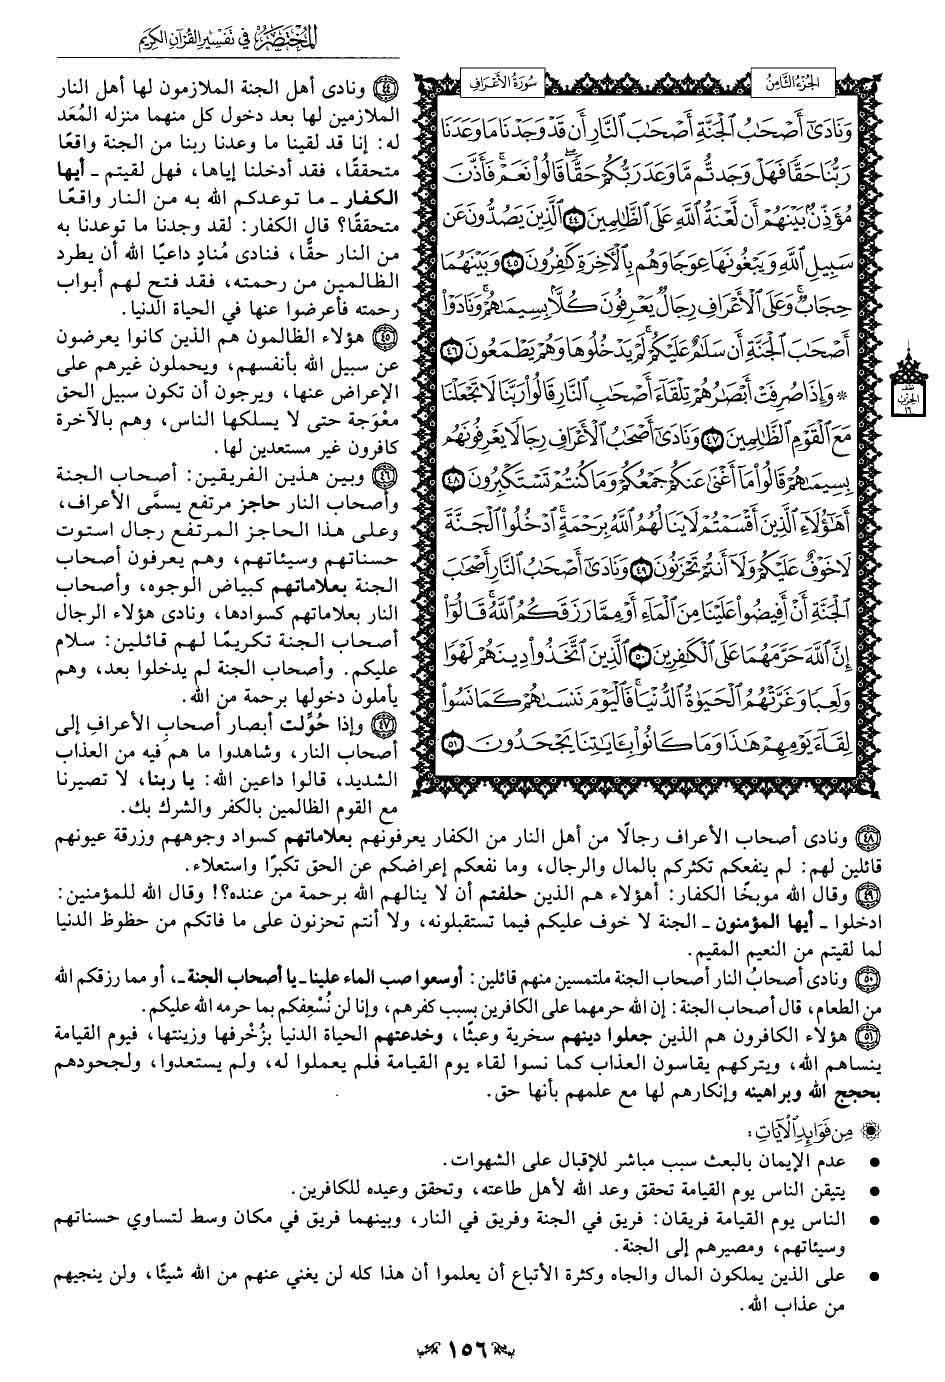 المختصر في تفسير القرآن الكريم
الجزء الثامن
سورة الأعراف
وَنَادَىٰٓ أَصْحَٰبُ ٱلْجَنَّةِ أَصْحَٰبَ ٱلنَّارِ أَن قَدْ وَجَدْنَا مَا وَعَدَنَا
رَبُّنَا حَقًّا فَهَلْ وَجَدتُّم مَّا وَعَدَ رَبُّكُمْ حَقًّا ۖ قَالُوا۟ نَعَمْ ۚ فَأَذَّنَ
مُؤَذِّنٌۢ بَيْنَهُمْ أَن لَّعْنَةُ ٱللَّهِ عَلَى ٱلظَّٰلِمِينَ ٤٤ ٱلَّذِينَ يَصُدُّونَ عَن
سَبِيلِ ٱللَّهِ وَيَبْغُونَهَا عِوَجًا وَهُم بِٱلْءَاخِرَةِ كَٰفِرُونَ ٤٥ وَبَيْنَهُمَا
حِجَابٌ ۚ وَعَلَى ٱلْأَعْرَافِ رِجَالٌ يَعْرِفُونَ كُلًّۢا بِسِيمَىٰهُمْ ۚ وَنَادَوْا۟
أَصْحَٰبَ ٱلْجَنَّةِ أَن سَلَٰمٌ عَلَيْكُمْ ۚ لَمْ يَدْخُلُوهَا وَهُمْ يَطْمَعُونَ ٤٦
* وَإِذَا صُرِفَتْ أَبْصَٰرُهُمْ تِلْقَآءَ أَصْحَٰبِ ٱلنَّارِ قَالُوا۟ رَبَّنَا لَا تَجْعَلْنَا
مَعَ ٱلْقَوْمِ ٱلظَّٰلِمِينَ ٤٧ وَنَادَىٰٓ أَصْحَٰبُ ٱلْأَعْرَافِ رِجَالًا يَعْرِفُونَهُم
بِسِيمَىٰهُمْ قَالُوا۟ مَآ أَغْنَىٰ عَنكُمْ جَمْعُكُمْ وَمَا كُنتُمْ تَسْتَكْبِرُونَ ٤٨
أَهَٰٓؤُلَآءِ ٱلَّذِينَ أَقْسَمْتُمْ لَا يَنَالُهُمُ ٱللَّهُ بِرَحْمَةٍ ۚ ٱدْخُلُوا۟ ٱلْجَنَّةَ
لَا خَوْفٌ عَلَيْكُمْ وَلَآ أَنتُمْ تَحْزَنُونَ ٤٩ وَنَادَىٰٓ أَصْحَٰبُ ٱلنَّارِ أَصْحَٰبَ
ٱلْجَنَّةِ أَنْ أَفِيضُوا۟ عَلَيْنَا مِنَ ٱلْمَآءِ أَوْ مِمَّا رَزَقَكُمُ ٱللَّهُ ۚ قَالُوٓا۟
إِنَّ ٱللَّهَ حَرَّمَهُمَا عَلَى ٱلْكَٰفِرِينَ ٥٠ ٱلَّذِينَ ٱتَّخَذُوا۟ دِينَهُمْ لَهْوًا
وَلَعِبًا وَغَرَّتْهُمُ ٱلْحَيَوٰةُ ٱلدُّنْيَا ۚ فَٱلْيَوْمَ نَنسَىٰهُمْ كَمَا نَسُوا۟
لِقَآءَ يَوْمِهِمْ هَٰذَا وَمَا كَانُوا۟ بِـَٔايَٰتِنَا يَجْحَدُونَ ٥١
نصف
الحزب
١٦
٤٤ ونادى أهل الجنة الملازمون لها أهل النار
الملازمين لها بعد دخول كل منهما منزله المُعَد
له: إنا قد لقينا ما وعدنا ربنا من الجنة واقعًا
متحققًا، فقد أدخلنا إياها، فهل لقيتم ـ أيها
الكفار ـ ما توعدكم الله به من النار واقعًا
متحققًا؟ قال الكفار: لقد وجدنا ما توعدنا به
من النار حقًّا، فنادى مُنادٍ داعيًا الله أن يطرد
الظالمين من رحمته، فقد فتح لهم أبواب
رحمته فأعرضوا عنها في الحياة الدنيا.
٤٥ هؤلاء الظالمون هم الذين كانوا يعرضون
عن سبيل الله بأنفسهم، ويحملون غيرهم على
الإعراض عنها، ويرجون أن تكون سبيل الحق
معْوَجة حتى لا يسلكها الناس، وهم بالآخرة
كافرون غير مستعدين لها.
٤٦ وبين هذين الفريقين: أصحاب الجنة
وأصحاب النار حاجز مرتفع يسمَّى الأعراف،
وعلى هذا الحاجز المرتفع رجال استوت
حسناتهم وسيئاتهم، وهم يعرفون أصحاب
الجنة بعلاماتهم كبياض الوجوه، وأصحاب
النار بعلاماتهم كسوادها، ونادى هؤلاء الرجال
أصحاب الجنة تكريمًا لهم قائلين: سلام
عليكم. وأصحاب الجنة لم يدخلوا بعد، وهم
يأملون دخولها برحمة من الله.
٤٧ وإذا حُوِّلت أبصار أصحاب الأعراف إلى
أصحاب النار، وشاهدوا ما هم فيه من العذاب
الشديد، قالوا داعين الله: يا ربنا، لا تصيرنا
مع القوم الظالمين بالكفر والشرك بك.
٤٨ ونادى أصحاب الأعراف رجالًا من أهل النار من الكفار يعرفونهم بعلاماتهم كسواد وجوههم وزرقة عيونهم
قائلين لهم: لم ينفعكم تكثركم بالمال والرجال، وما نفعكم إعراضكم عن الحق تكبرًا واستعلاء.
٤٩ وقال الله موبخًا الكفار: أهؤلاء هم الذين حلفتم أن لا ينالهم الله برحمة من عنده؟! وقال الله للمؤمنين:
ادخلوا ـ أيها المؤمنون ـ الجنة لا خوف عليكم فيما تستقبلونه، ولا أنتم تحزنون على ما فاتكم من حظوظ الدنيا
لما لقيتم من النعيم المقيم.
٥٠ ونادى أصحابُ النار أصحاب الجنة ملتمسين منهم قائلين: أوسعوا صب الماء علينا ـ يا أصحاب الجنة ـ، أو مما رزقكم الله
من الطعام، قال أصحاب الجنة: إن الله حرمهما على الكافرين بسبب كفرهم، وإنا لن نُسْعِفكم بما حرمه الله عليكم.
٥١ هؤلاء الكافرون هم الذين جعلوا دينهم سخرية وعبثًا، وخدعتهم الحياة الدنيا بزُخْرفها وزينتها، فيوم القيامة
ينساهم الله، ويتركهم يقاسون العذاب كما نسوا لقاء يوم القيامة فلم يعملوا له، ولم يستعدوا، ولجحودهم
بحجج الله وبراهينه وإنكارهم لها مع علمهم بأنها حق.
من فوائد الآيات:
• عدم الإيمان بالبعث سبب مباشر للإقبال على الشهوات.
• يتيقن الناس يوم القيامة تحقق وعد الله لأهل طاعته، وتحقق وعيده للكافرين.
• الناس يوم القيامة فريقان: فريق في الجنة وفريق في النار، وبينهما فريق في مكان وسط لتساوي حسناتهم
وسيئاتهم، ومصيرهم إلى الجنة.
• على الذين يملكون المال والجاه وكثرة الأتباع أن يعلموا أن هذا كله لن يغني عنهم من الله شيئًا، ولن ينجيهم
من عذاب الله.
١٥٦